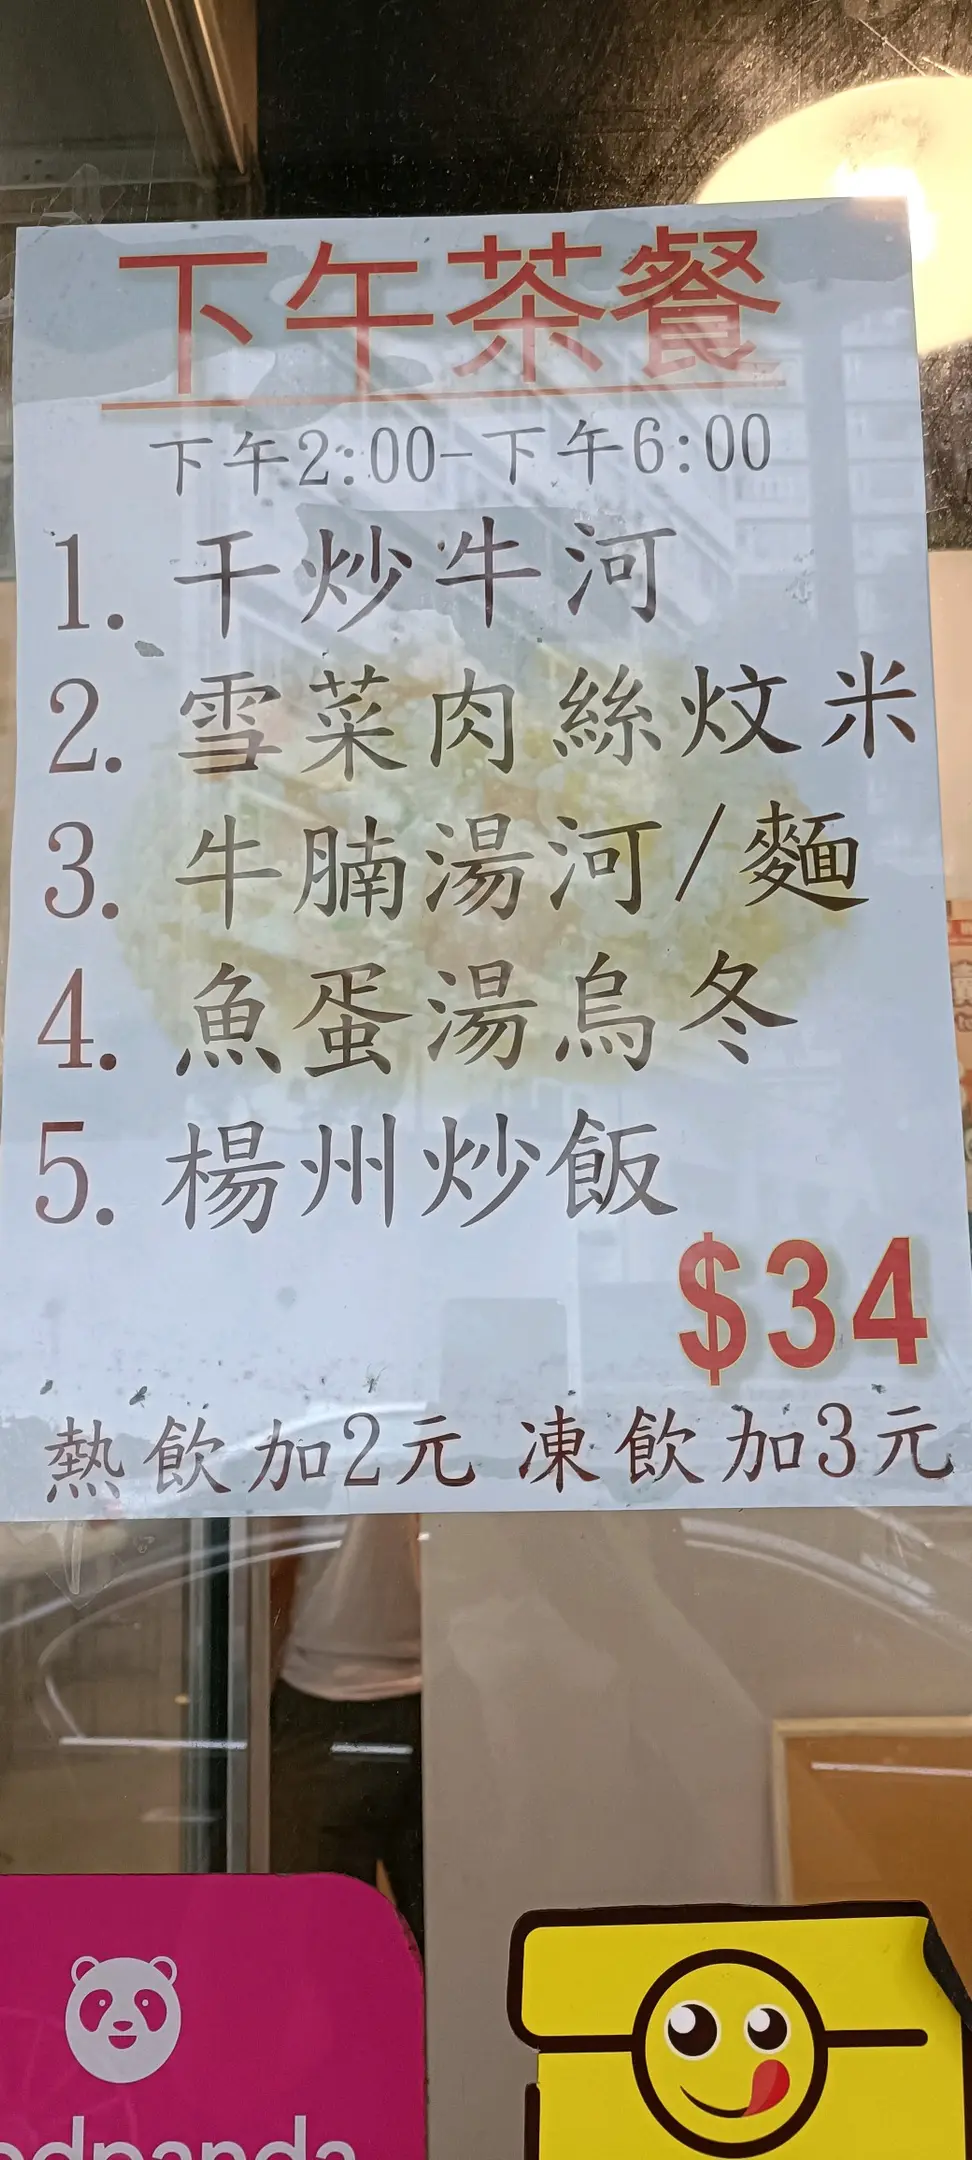 下午茶餐
下午2:00-下午6:00
1. 干炒牛河
2. 雪菜肉絲炆米
3. 牛腩湯河/麵
4. 魚蛋湯烏冬
5. 楊州炒飯
$34
熱飲加2元 凍飲加3元